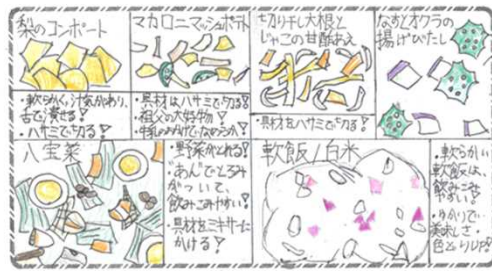 梨のコンポート
・軟らかく、汁気があり、
舌で潰せる!
・ハサミで切る!
マカロニマッシュポテト
・具材はハサミで切る!
・祖父の大好物!
・牛乳の
切り干し大根と
じゃこの甘酢あえ
・具材をハサミで切る!
なすとオクラの
揚げびたし
八宝菜
・野菜がとれる!
・"あん"でとろみ
がついて、
飲みこみやすい!
・具材をミキサーに
かける!
軟飯/白米
・軟らかい
軟飯は、
飲みこみ
やすい!
・ゆかりで
美味しさ・
色どりUP!